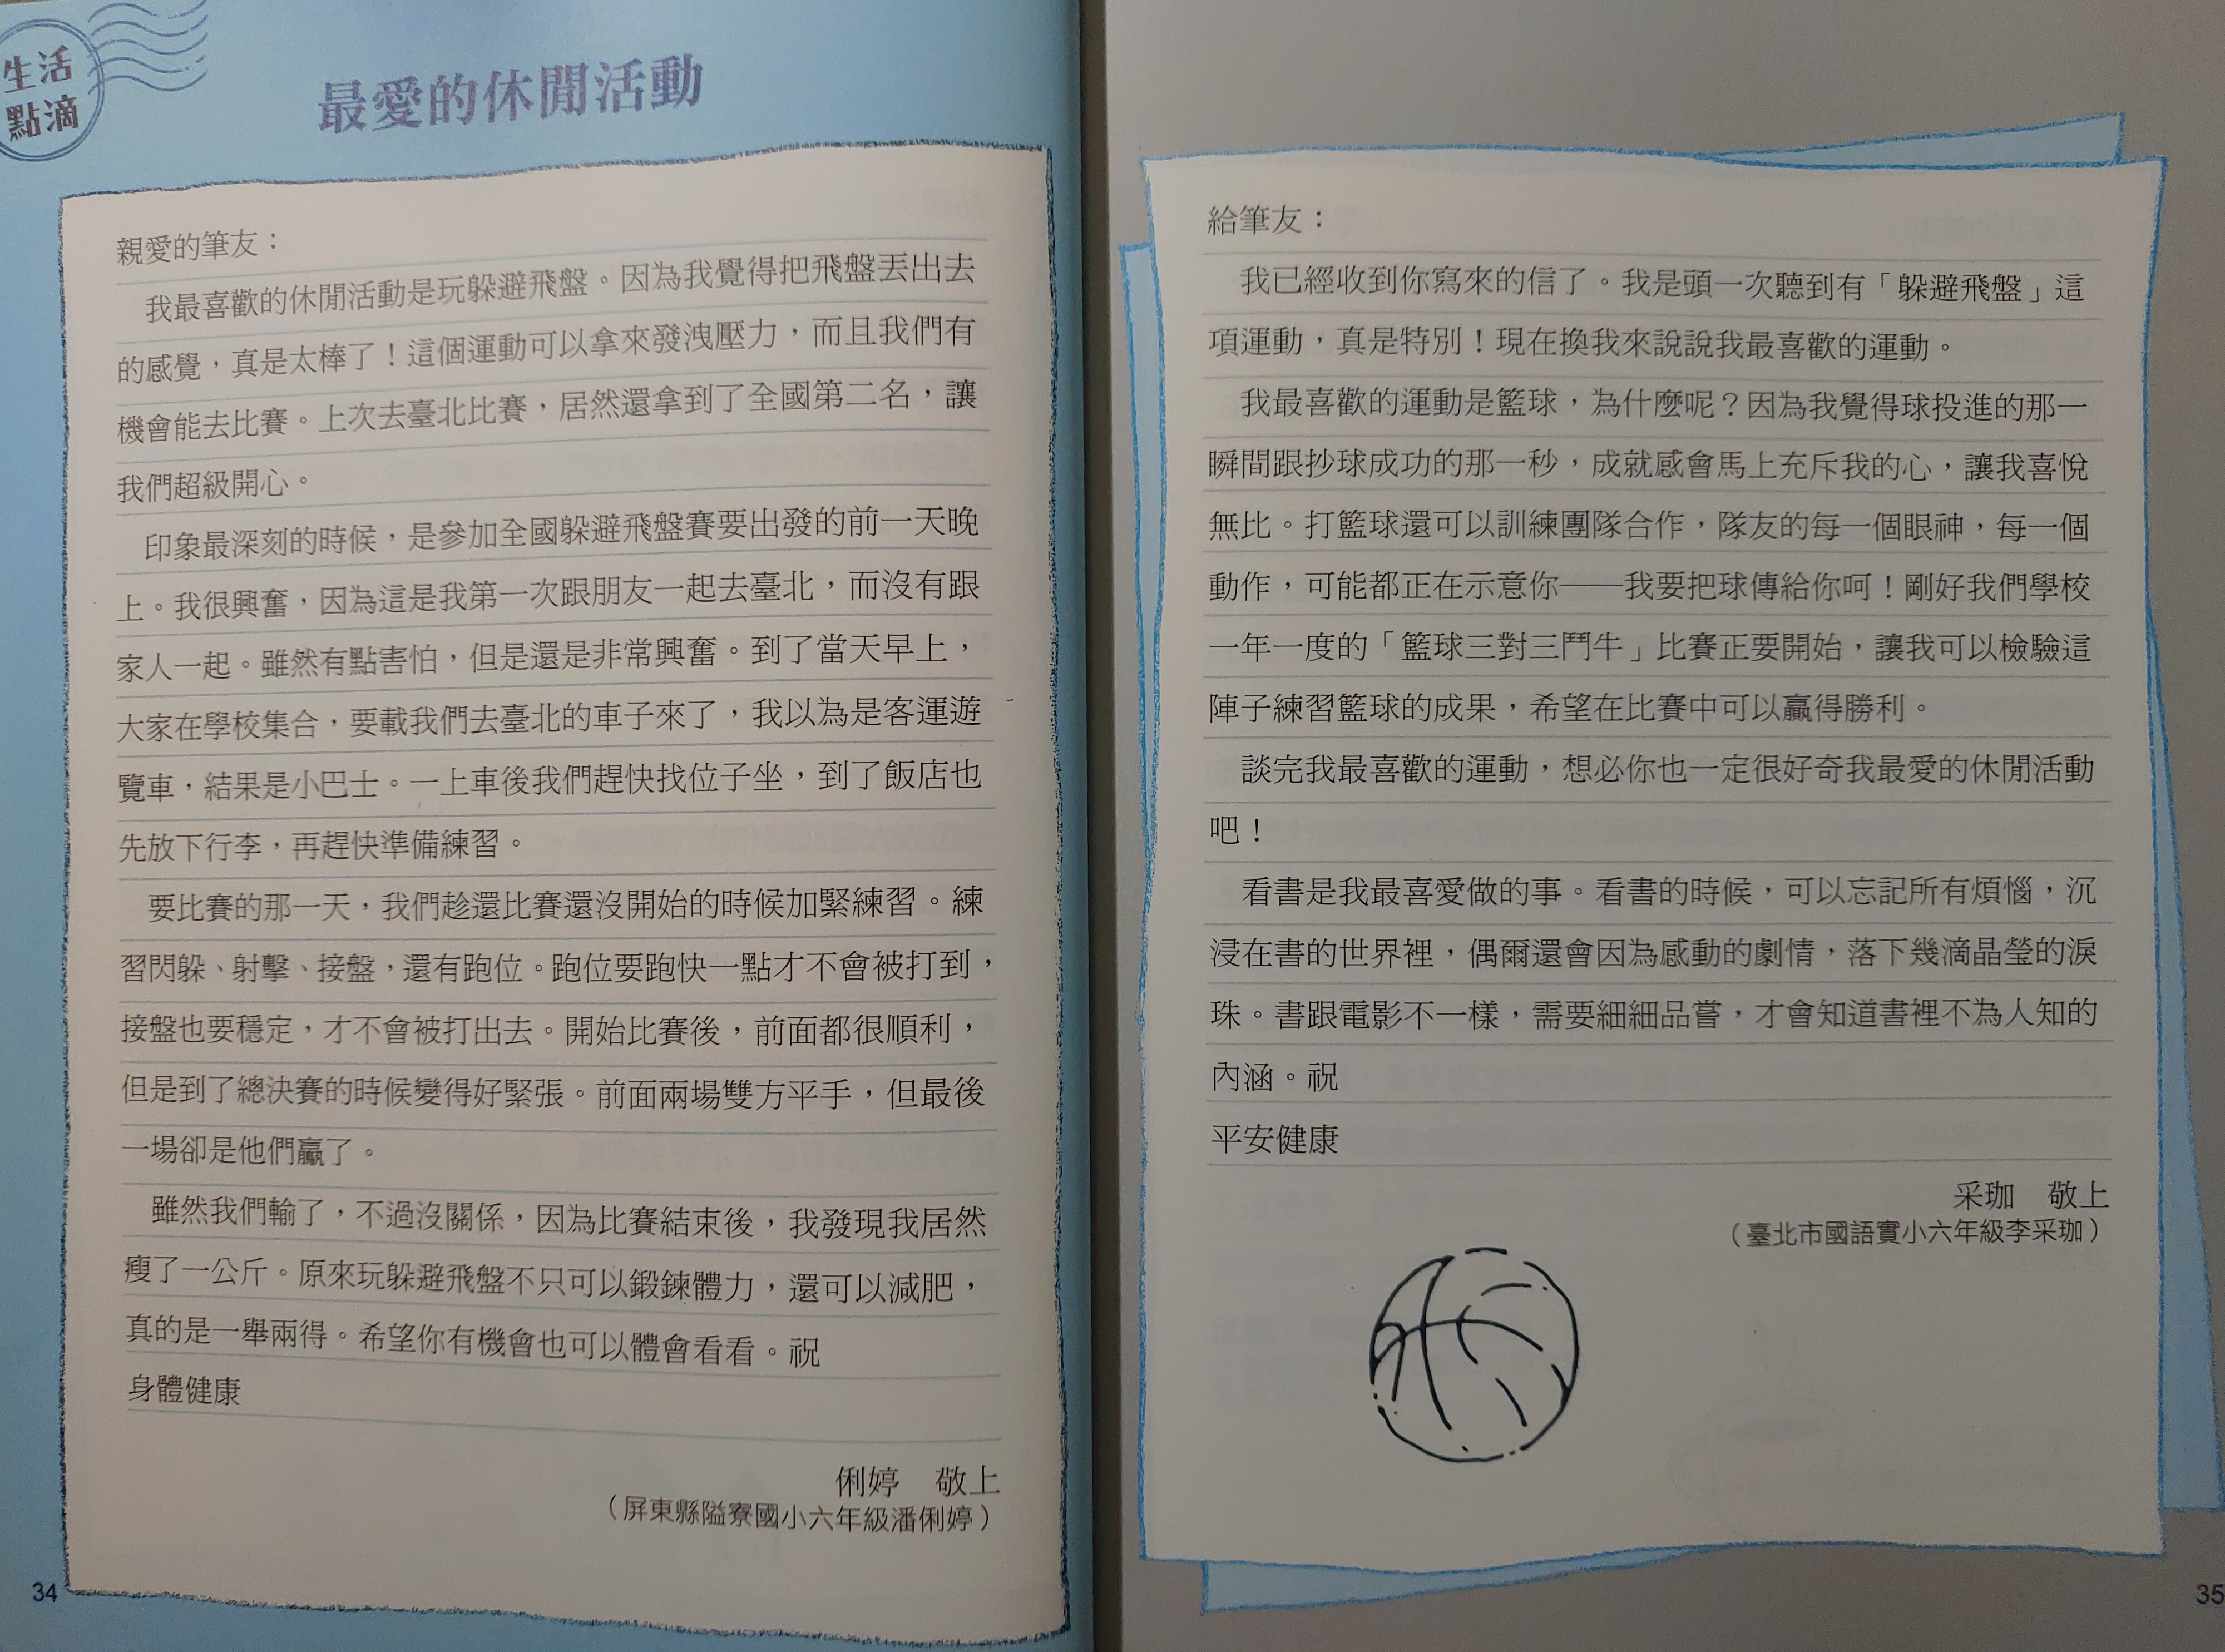 生活
點滴
最愛的休閒活動
親愛的筆友：
我最喜歡的休閒活動是玩躲避飛盤。因為我覺得把飛盤丟出去
的感覺，真是太棒了！這個運動可以拿來發洩壓力，而且我們有
機會能去比賽。上次去臺北比賽，居然還拿到了全國第二名，讓
我們超級開心。
印象最深刻的時候，是參加全國躲避飛盤賽要出發的前一天晚
上。我很興奮，因為這是我第一次跟朋友一起去臺北，而沒有跟
家人一起。雖然有點害怕，但是還是非常興奮。到了當天早上，
大家在學校集合，要載我們去臺北的車子來了，我以為是客運遊
覽車，結果是小巴士。一上車後我們趕快找位子坐，到了飯店也
先放下行李，再趕快準備練習。
要比賽的那一天，我們趁還比賽還沒開始的時候加緊練習。練
習閃躲、射擊、接盤，還有跑位。跑位要跑快一點才不會被打到，
接盤也要穩定，才不會被打出去。開始比賽後，前面都很順利，
但是到了總決賽的時候變得好緊張。前面兩場雙方平手，但最後
一場卻是他們贏了。
雖然我們輸了，不過沒關係，因為比賽結束後，我發現我居然
瘦了一公斤。原來玩躲避飛盤不只可以鍛鍊體力，還可以減肥，
真的是一舉兩得。希望你有機會也可以體會看看。祝
身體健康
俐婷　敬上
（屏東縣隘寮國小六年級潘俐婷）
34
給筆友：
我已經收到你寫來的信了。我是頭一次聽到有「躲避飛盤」這
項運動，真是特別！現在換我來說說我最喜歡的運動。
我最喜歡的運動是籃球，為什麼呢？因為我覺得球投進的那一
瞬間跟抄球成功的那一秒，成就感會馬上充斥我的心，讓我喜悅
無比。打籃球還可以訓練團隊合作，隊友的每一個眼神，每一個
動作，可能都正在示意你──我要把球傳給你呵！剛好我們學校
一年一度的「籃球三對三鬥牛」比賽正要開始，讓我可以檢驗這
陣子練習籃球的成果，希望在比賽中可以贏得勝利。
談完我最喜歡的運動，想必你也一定很好奇我最愛的休閒活動
吧！
看書是我最喜愛做的事。看書的時候，可以忘記所有煩惱，沉
浸在書的世界裡，偶爾還會因為感動的劇情，落下幾滴晶瑩的淚
珠。書跟電影不一樣，需要細細品嘗，才會知道書裡不為人知的
內涵。祝
平安健康
采珈　敬上
（臺北市國語實小六年級李采珈）
35